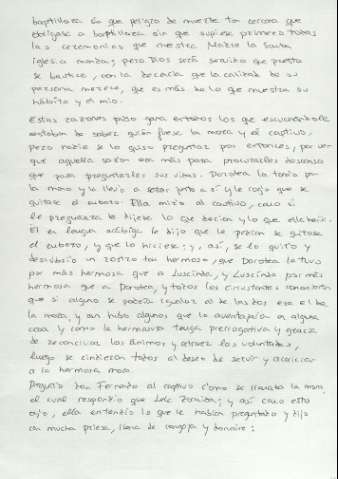 baptizarla sin que peligro de muerte tan cercana que
obligase a baptizarla sin que supiese primero todas
las ceremonias que nuestra Madre la Santa
iglesia manda; pero Dios será servido que presto
se bautice, con la decencia que la calidad de su
persona merece, que es más de lo que muestra su
hábito y el mío.
Estas razones puso gana en todos los que escuchándole
estaban de saber quién fuese la mora y el captivo;
pero nadie se lo quiso preguntar por entonces, por ver
que aquella sazón era más para procurarles descanso
que para preguntarles sus vidas. Dorotea la tomó por
la mano y la llevó a sentar junto a sí y le rogó que se
quitase el embozo. Ella miró al cautivo, como si
le preguntara le dijese lo que decían y lo que ella haría.
Él en lengua arábiga le dijo que le pedían se quitase
el embozo, y que lo hiciese; y, así, se lo quitó y
descubrió un rostro tan hermoso, que Dorotea la tuvo
por más hermosa que a Luscinda, y Luscinda por más
hermosa que a Dorotea, y todos los circustantes conocieron
que si alguno se podría igualar al de las dos era el de
la mora, y aun hubo algunos que la aventajaron en alguna
cosa. Y como la hermosura tenga prerrogativa y gracia
de reconciliar los ánimos y atraer las voluntades,
luego se rindieron todos al deseo de servir y acariciar
a la hermosa mora.
Preguntó don Fernando al captivo cómo se llamaba la mora,
el cual respondió que Lela Zoraida; y así como esto
oyó, ella entendió lo que le habían preguntado y dijo
con mucha priesa, llena de congoja y donaire: